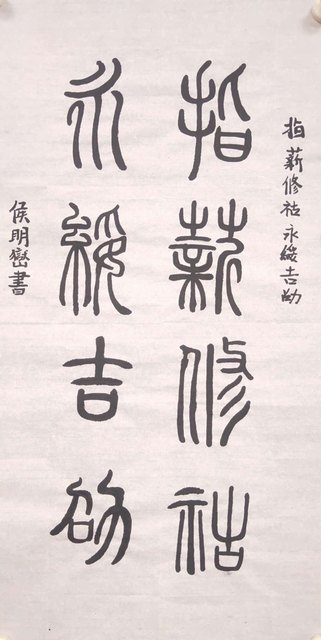 指薪修祜永綏吉劭
指薪修祜
永綏吉劭
侯明巒書